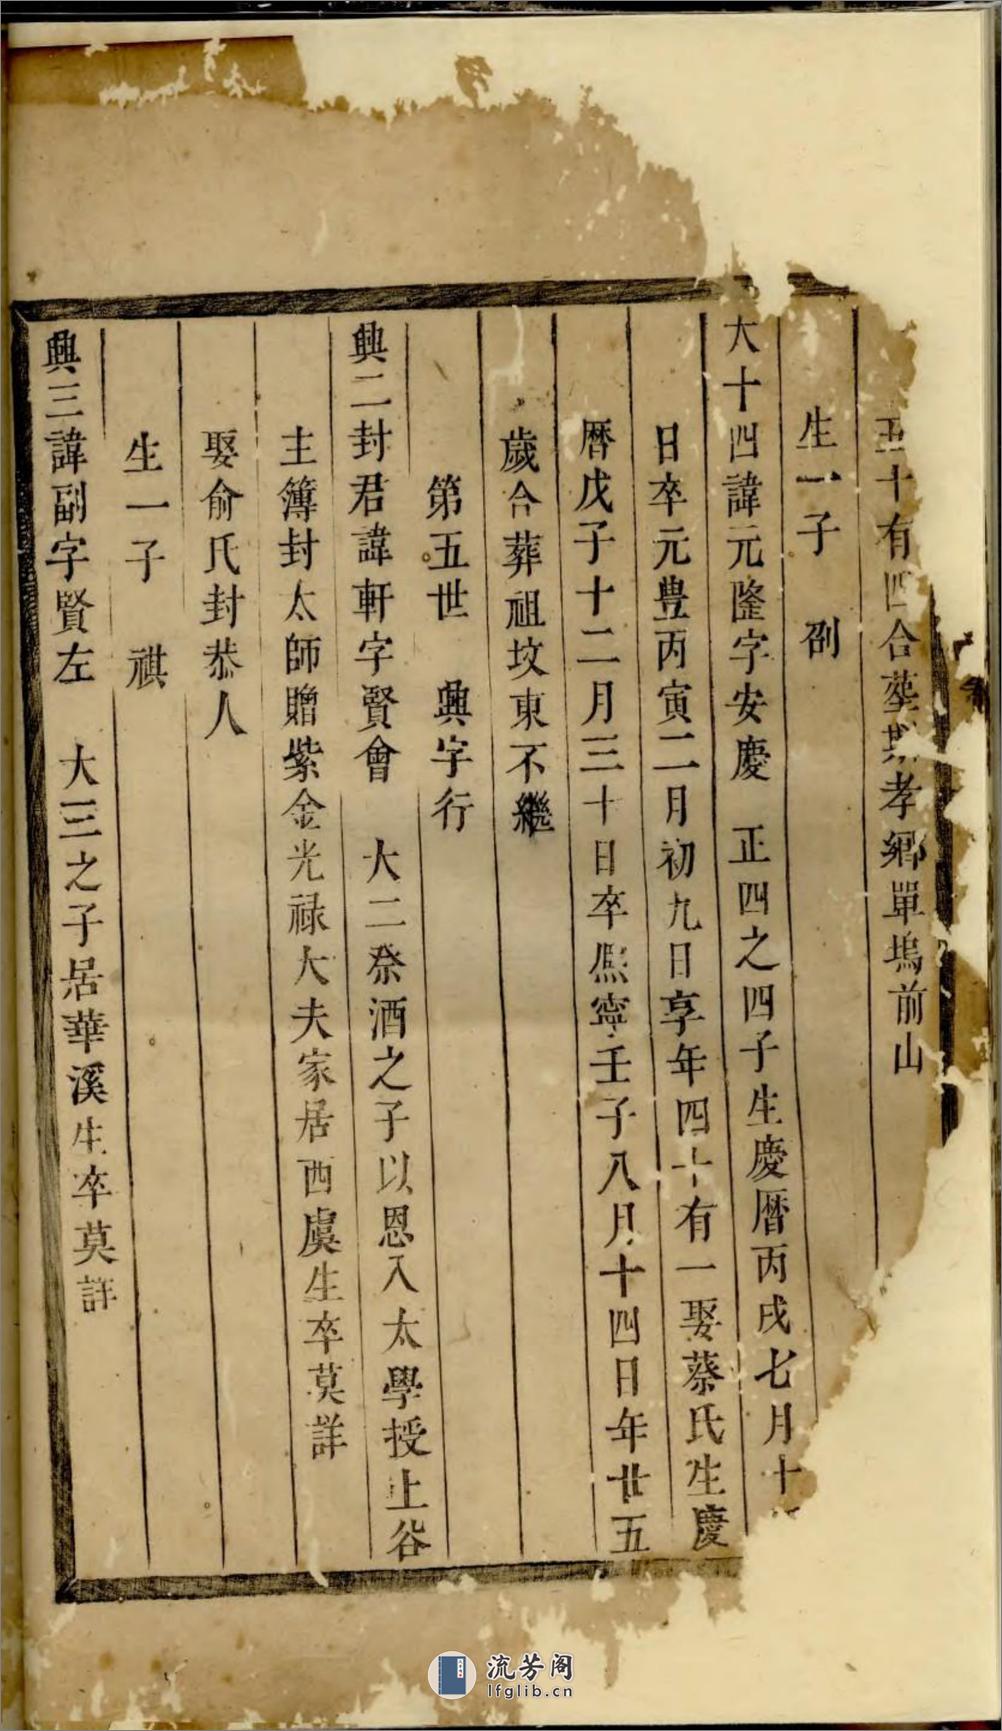 五十有四合葬孝鄉單塢前山
生一子 劄
大十四諱元隆字安慶 正四之四子生慶曆丙戌七月十
日卒元豊丙寅二月初九日享年四十有一娶蔡氏生慶
曆戊子十二月三十日卒熈寧壬子八月十四日年廿五
歲合葬祖坟東不繼
第五世 興字行
興二封君諱軒字賢會 大二祭酒之子以恩入太學授上谷
主簿封太師贈紫金光禄大夫家居西虞生卒莫詳
娶俞氏封恭人
生一子 祺
興三諱副字賢左 大三之子居華溪生卒莫詳
流芳阁
lfglib.cn